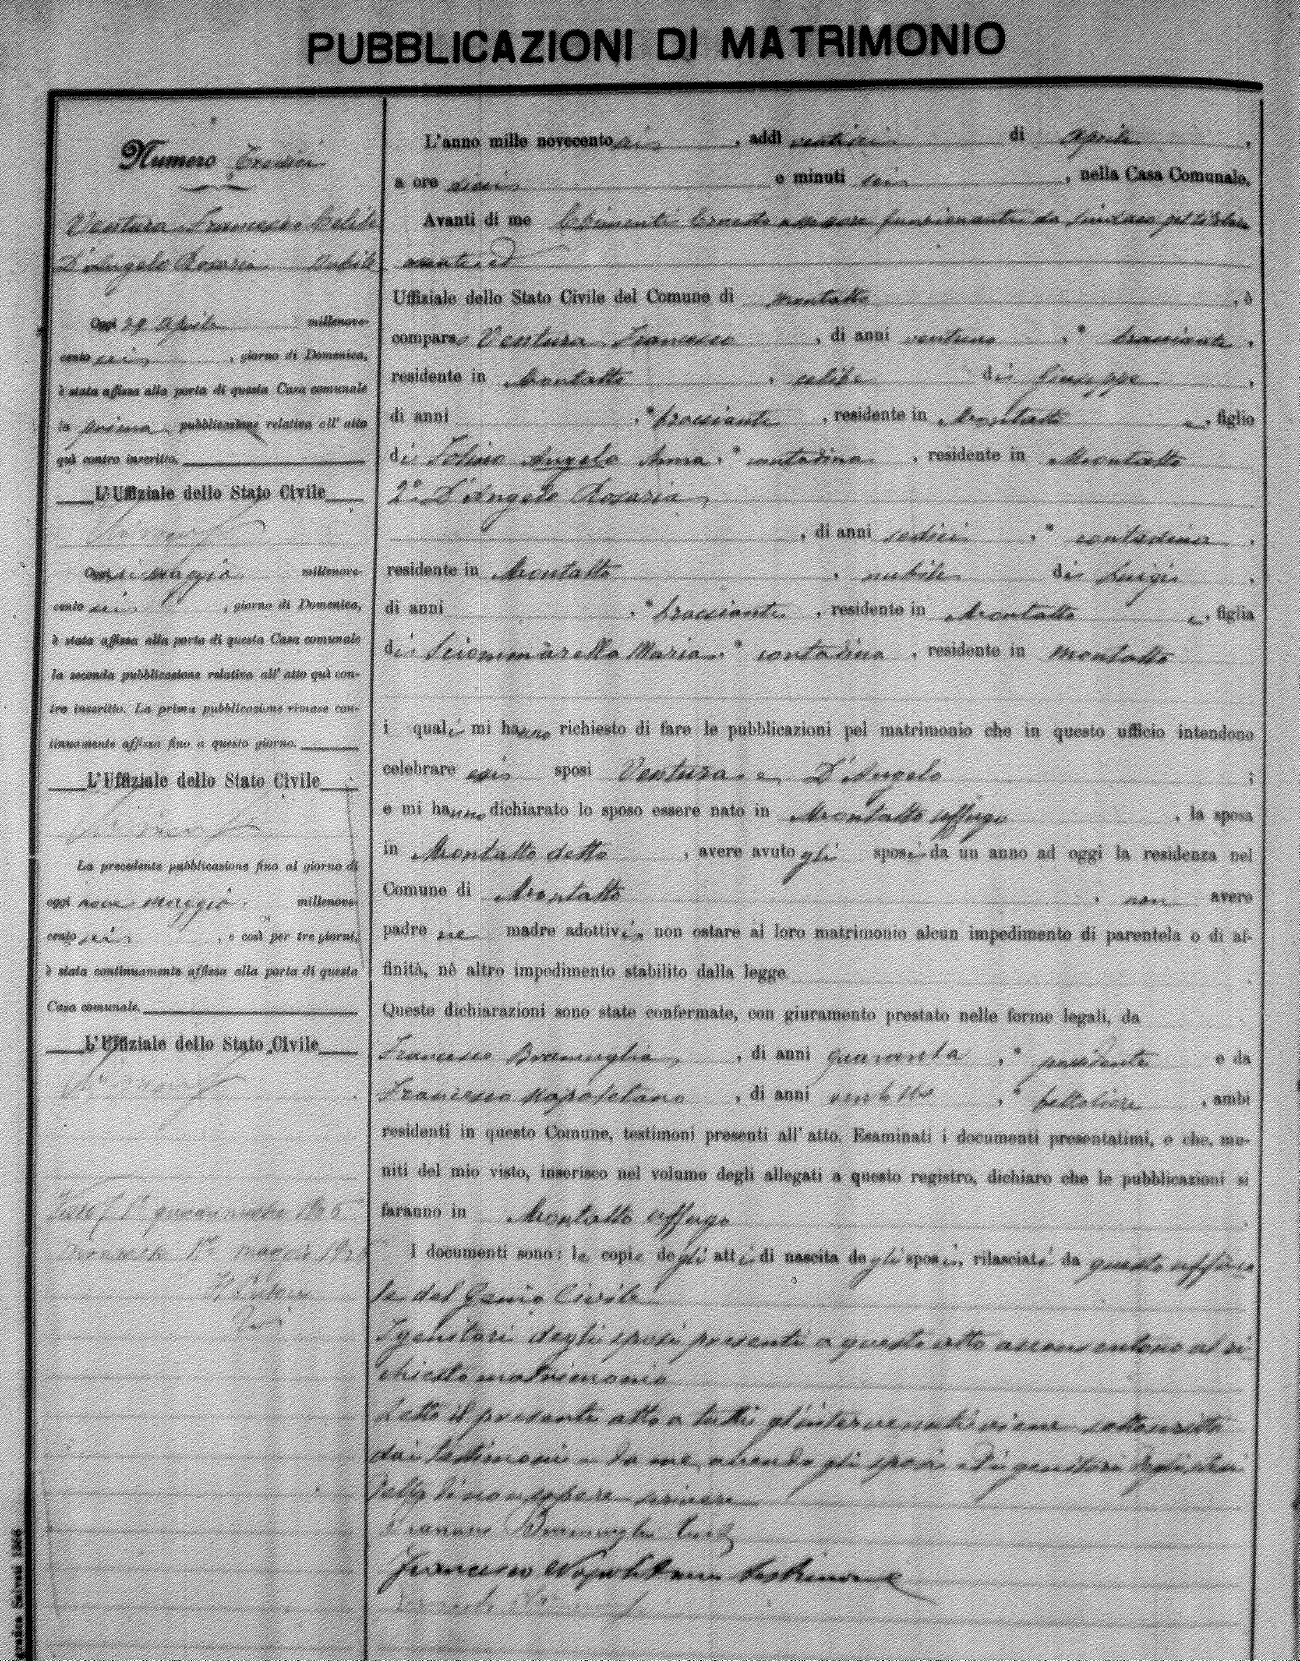 PUBBLICAZIONI DI MATRIMONIO
Numero Tredici
Ventura Francesco Celibe
D'Angelo Rosaria nubile
Oggi 29 Aprile millenove-
cento sei, giorno di Domenica,
è stata affissa alla porta di questa Casa comunale
la prima pubblicazione relativa all' atto
quì contro inscritto.
L'Uffiziale dello Stato Civile
Oggi sei maggio millenove-
cento sei, giorno di Domenica,
è stata affissa alla porta di questa Casa comunale
la seconda pubblicazione relativa all' atto quì con-
tro inscritto. La prima pubblicazione rimase con-
tinuamente affissa fino a questo giorno.
L'Uffiziale dello Stato Civile
La precedente pubblicazione fino al giorno di
oggi nove maggio millenove-
cento sei, e così per tre giorni,
è stata continuamente affissa alla porta di questa
Casa comunale.
L'Uffiziale dello Stato Civile
L'anno mille novecento sei, addì ventisei di Aprile,
a ore dieci e minuti sei, nella Casa Comunale.
Avanti di me Chimenti Ernesto assessore funzionante da sindaco pel titolare
assente ed
Uffiziale dello Stato Civile del Comune di Montalto, è
comparso Ventura Francesco, di anni ventuno, * bracciante,
residente in Montalto, celibe di Giuseppe,
di anni , * bracciante, residente in Montalto e, figlio
di Tolino Angelo Anna, * contadina, residente in Montalto
2° D'Angelo Rosaria,
, di anni sedici, * contadina,
residente in Montalto, nubile di Luigi,
di anni , * bracciante, residente in Montalto e, figlia
di Sciammarella Maria, * contadina, residente in Montalto
i quali mi hanno richiesto di fare le pubblicazioni pel matrimonio che in questo ufficio intendono
celebrare essi sposi Ventura e D'Angelo;
e mi hanno dichiarato lo sposo essere nato in Montalto uffugo, la sposa
in Montalto detto, avere avuto gli sposi da un anno ad oggi la residenza nel
Comune di Montalto, non avere
padre nè madre adottivi, non ostare al loro matrimonio alcun impedimento di parentela o di af-
finità, nè altro impedimento stabilito dalla legge
Queste dichiarazioni sono state confermate, con giuramento prestato nelle forme legali, da
Francesco Bramuglia, di anni quaranta, * possidente e da
Francesco Napoletano, di anni, * bettoliere, ambi
residenti in questo Comune, testimoni presenti all' atto. Esaminati i documenti presentatimi, e che, mu-
niti del mio visto, inserisco nel volume degli allegati a questo registro, dichiaro che le pubblicazioni si
faranno in Montalto uffugo
I documenti sono: le copie degli atti di nascita degli sposi, rilasciate da questo uffizia
le del Genio Civile
I genitori degli sposi presenti a questo atto acconsentono al ri-
chiesto matrimonio
Letto il presente atto a tutti gl'intervenuti viene sottoscritto
dai testimoni e da me, avendo gli sposi ed i genitori
detto di non sapere scrivere
Francesco Bramuglia test
Francesco Napoletano testimone